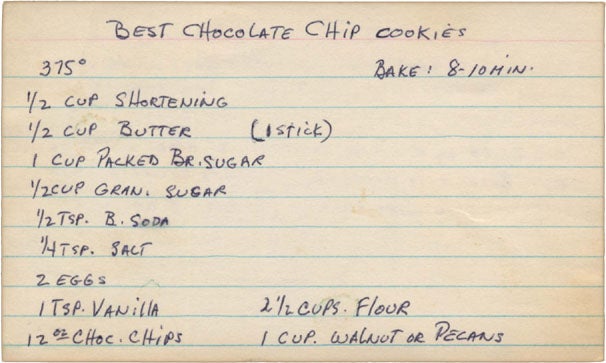 BEST CHOCOLATE CHIP COOKIES
375° BAKE: 8-10 MIN.
1/2 CUP SHORTENING
1/2 CUP BUTTER (1 STICK)
1 CUP PACKED BR. SUGAR
1/2 CUP GRAN. SUGAR
1/2 TSP. B. SODA
1/4 TSP. SALT
2 EGGS
1 TSP. VANILLA 2 1/2 CUPS. FLOUR
12 oz CHOC. CHIPS 1 CUP. WALNUT OR PECANS